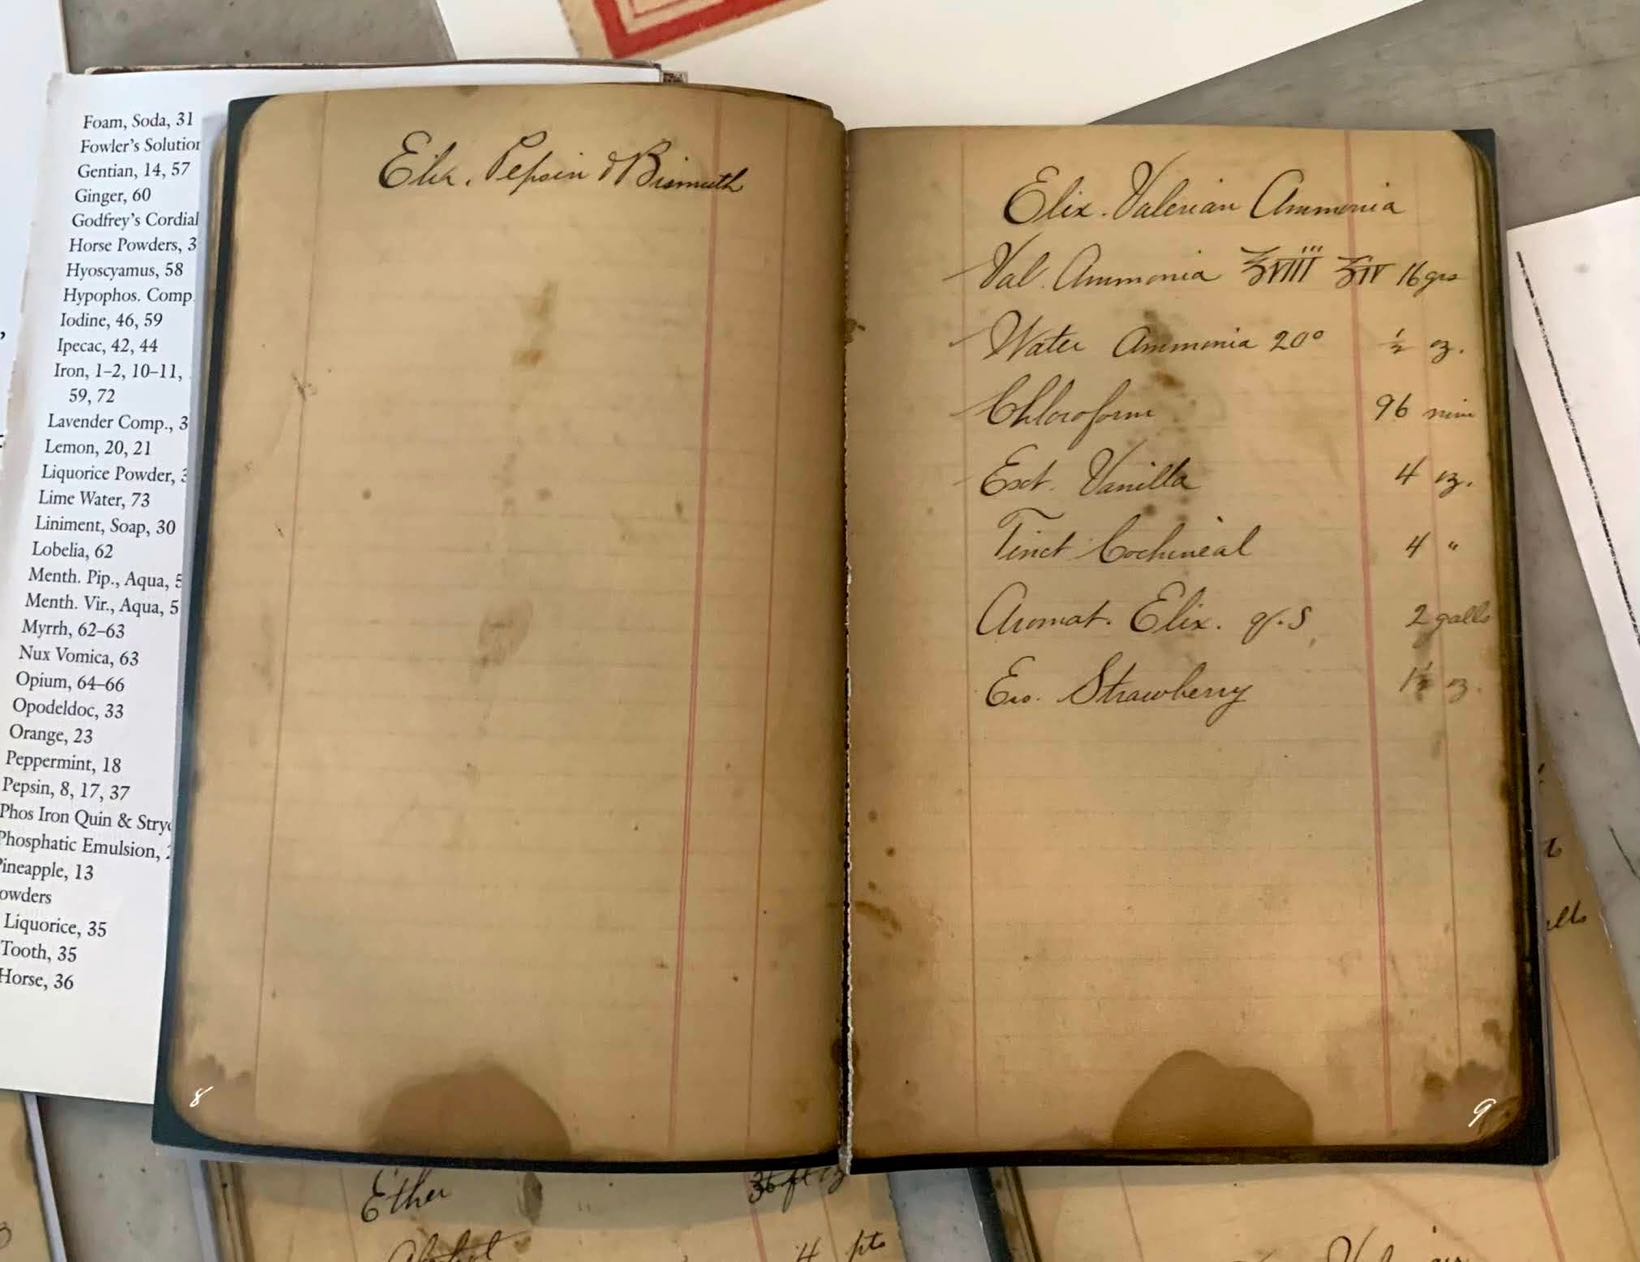 Foam, Soda, 31
Fowler's Solution
Gentian, 14, 57
Ginger, 60
Godfrey's Cordial
Horse Powders, 3
Hyoscyamus, 58
Hypophos. Comp
Iodine, 46, 59
Ipecac, 42, 44
Iron, 1–2, 10–11,
59, 72
Lavender Comp., 3
Lemon, 20, 21
Liquorice Powder, 3
Lime Water, 73
Liniment, Soap, 30
Lobelia, 62
Menth. Pip., Aqua, 5
Menth. Vir., Aqua, 5
Myrrh, 62–63
Nux Vomica, 63
Opium, 64–66
Opodeldoc, 33
Orange, 23
Peppermint, 18
Pepsin, 8, 17, 37
Phos Iron Quin & Stryc
Phosphatic Emulsion,
Pineapple, 13
owders
Liquorice, 35
Tooth, 35
Horse, 36
Elix. Pepsin & Bismuth
8
Elix. Valerian Ammonia
Val. Ammonia ℥viii ʒiv 16 grs
Water Ammonia 20° ½ oz.
Chloroform 96 min
Ext. Vanilla 4 oz.
Tinct Cochineal 4 "
Aromat. Elix. q.s 2 galls
Ess. Strawberry 1½ oz.
9
Ether
Alcohol 4 pts